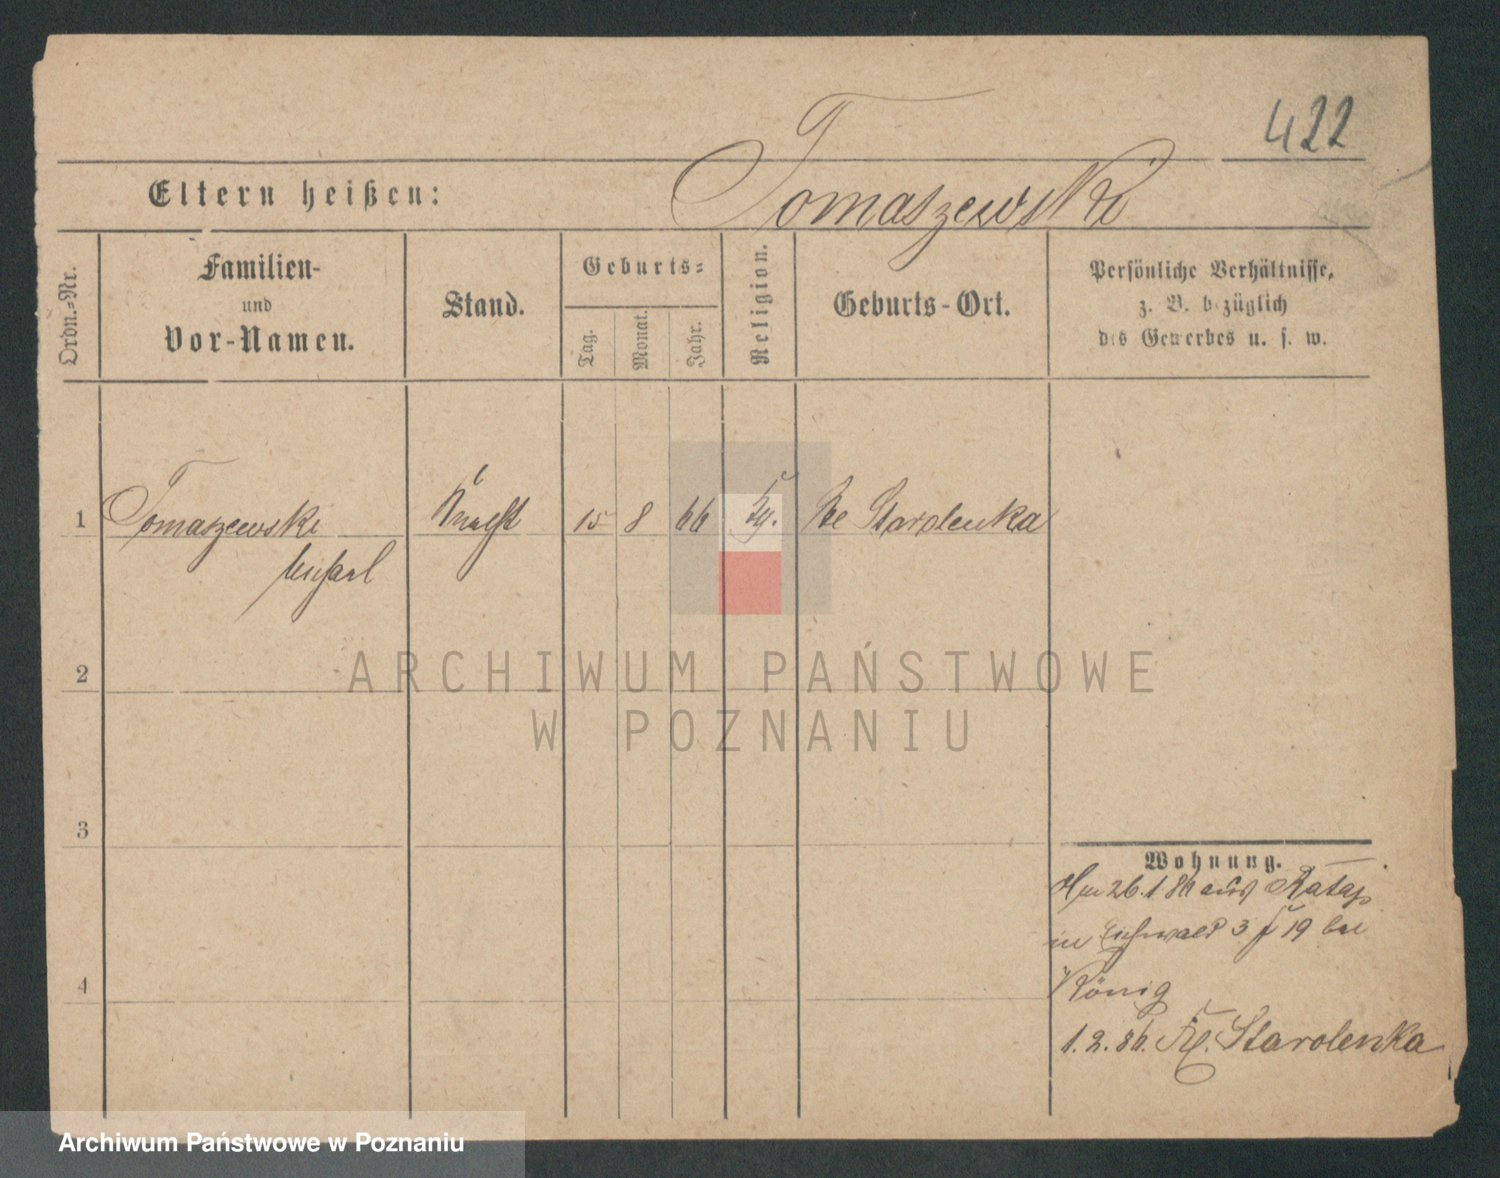 422
Eltern heißen: Tomaszewski
Ordn.-Nr.
Familien-
und
Vor-Namen.
Stand.
Geburts-
Tag.
Monat.
Jahr.
Religion.
Geburts-Ort.
Persönliche Verhältnisse,
z. B. bezüglich
des Gewerbes u. s. w.
1 Tomaszewski Knecht 15 8 66 Starolenka
Michael
2
3
4
Wohnung.
26.1.86 aus Rataj
in Eichwald 3 19 bei
König
1.2.86. Kl. Starolenka
ARCHIWUM PAŃSTWOWE
W POZNANIU
Archiwum Państwowe w Poznaniu